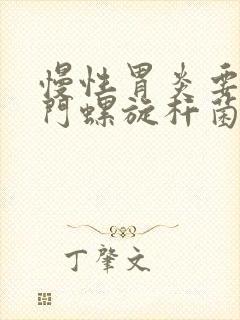 慢性胃炎要
门螺旋杆菌
丁肇文